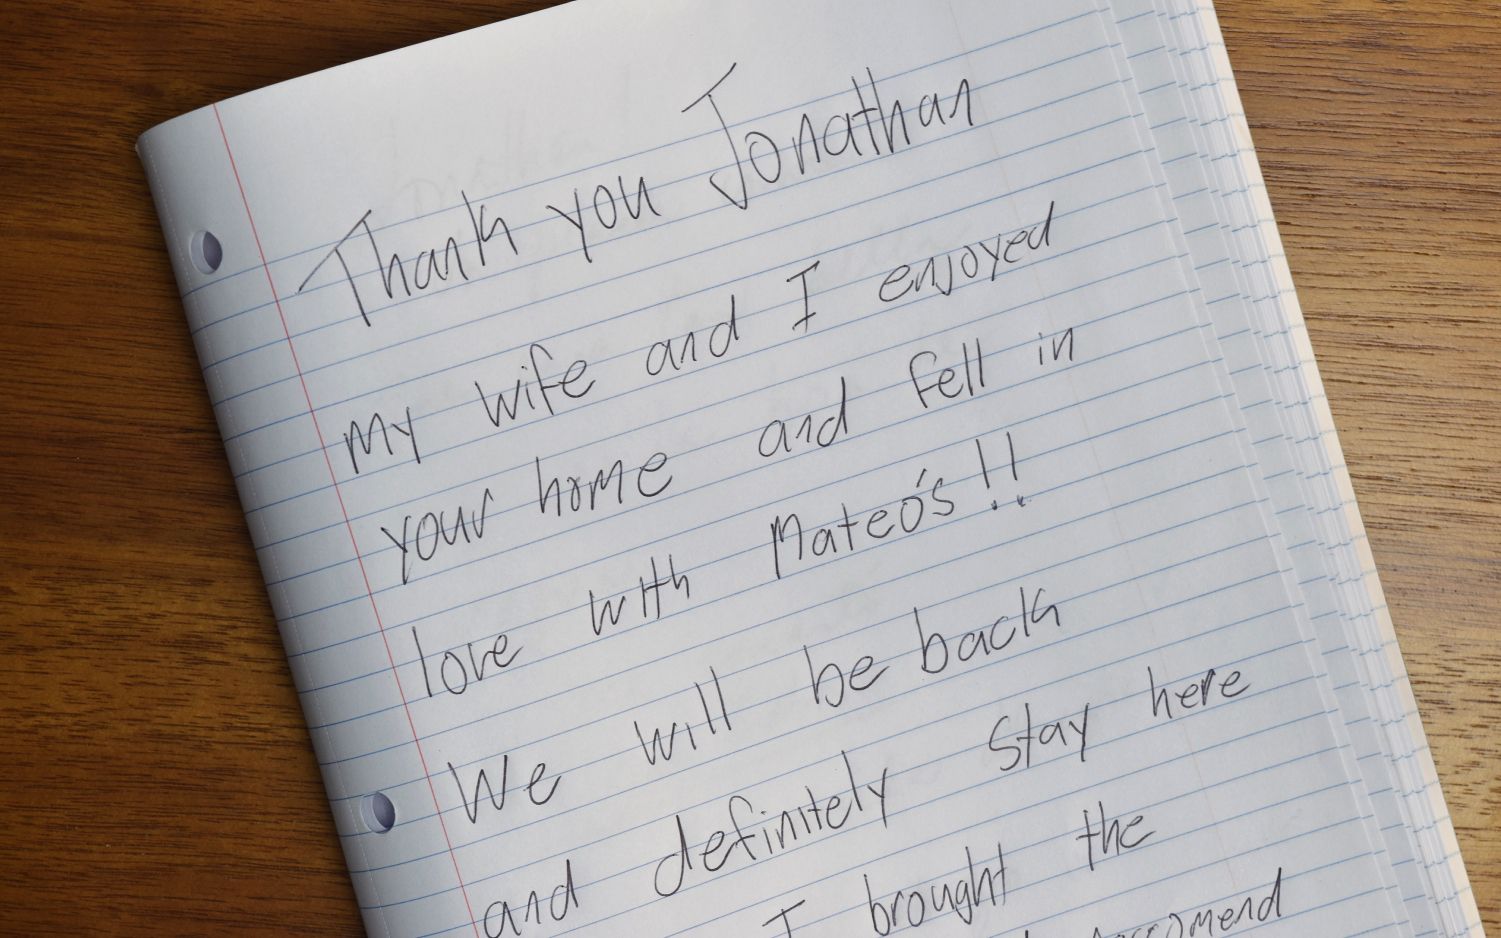 Thank you Jonathan
My wife and I enjoyed
your home and fell in
love with Mateó's!!
We will be back
and definitely stay here
I brought the